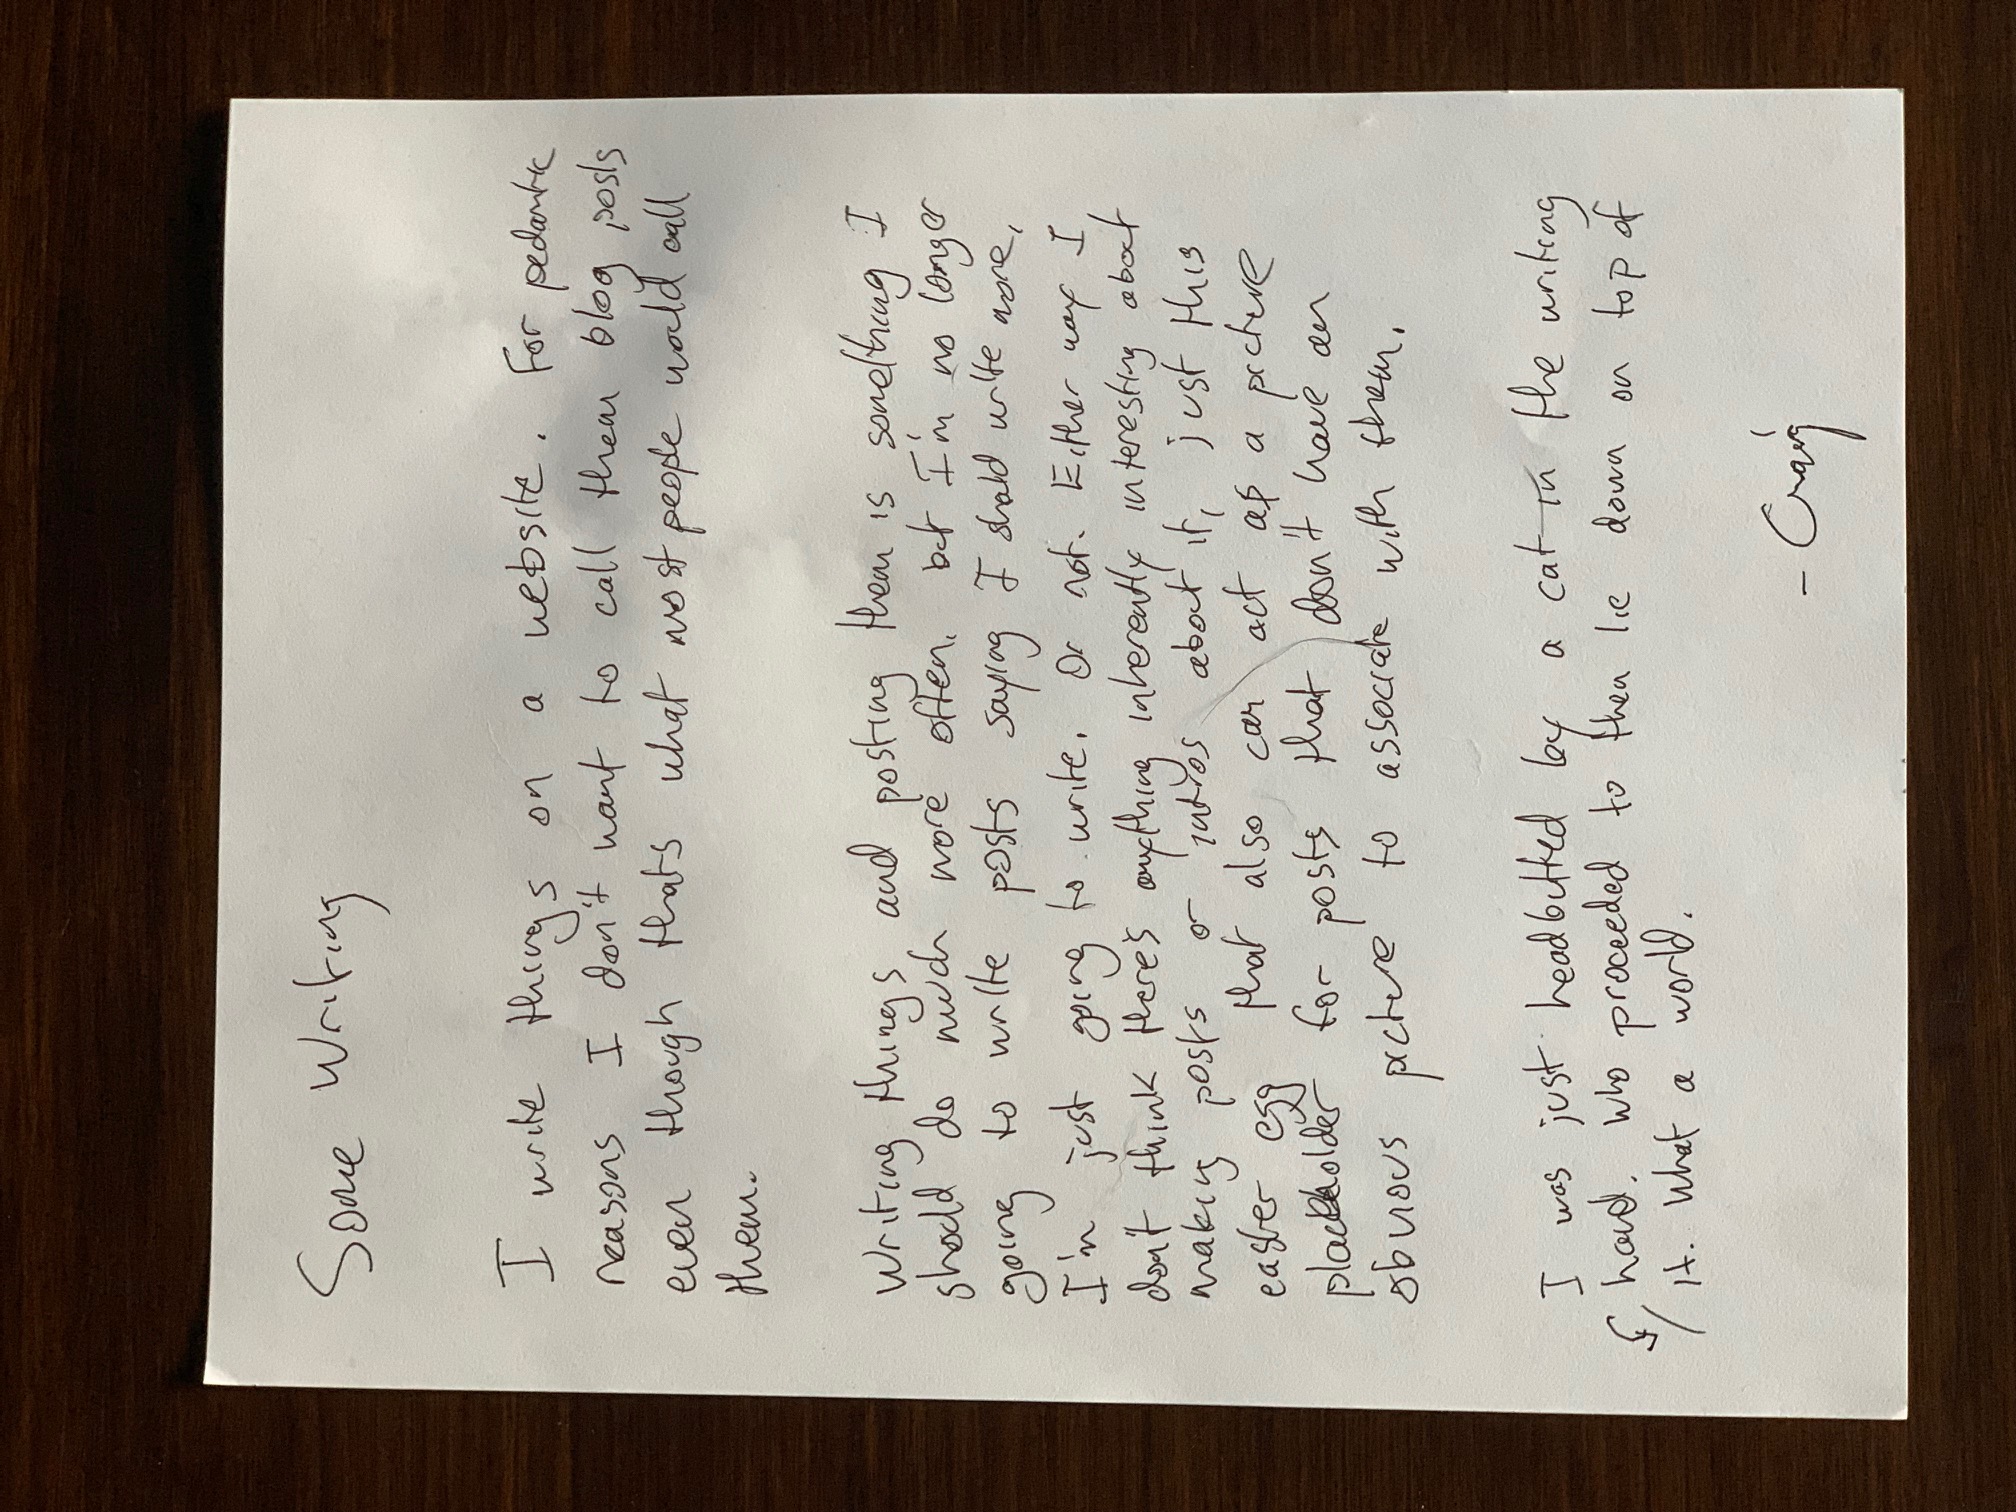 Some Writing
I write things on a website. For pedantic
reasons I don't want to call them blog posts
even though thats what most people would call
them.
Writing things and posting them is something I
should do much more often, but I'm no longer
going to write posts saying I should write more,
I'm just going to write. Or not. Either way I
don't think there's anything inherently interesting about
making posts or intros about it, just this
easter egg that also can act as a picture
placeholder for posts that don't have an
obvious picture to associate with them.
I was just headbutted by a cat in the writing
hand. Who proceeded to then lie down on top of
it. What a world.
- Craig